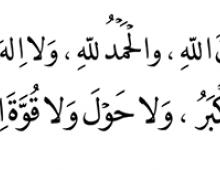 اللّٰهِ ، والْحَمْدُ للّٰهِ ، وَلا إِلهَ
كْبَرُ ، وَلا حَوْلَ وَلا قُوَّةَ إِ